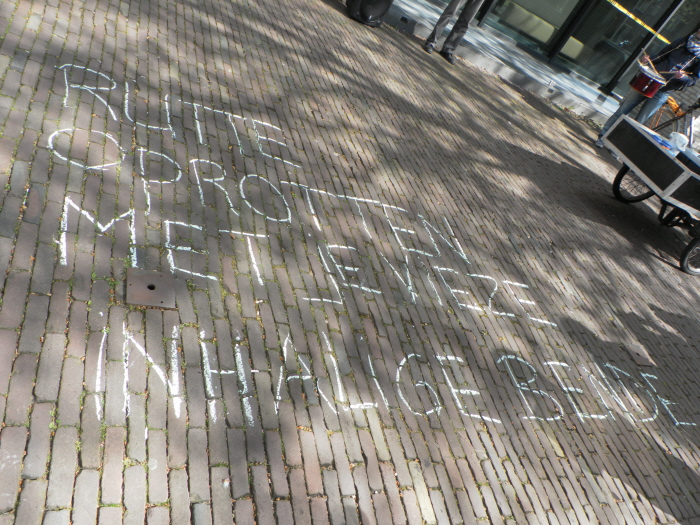 RUTTE
OPROTTEN
MET JE VIEZE
iNHALiGE BENDE